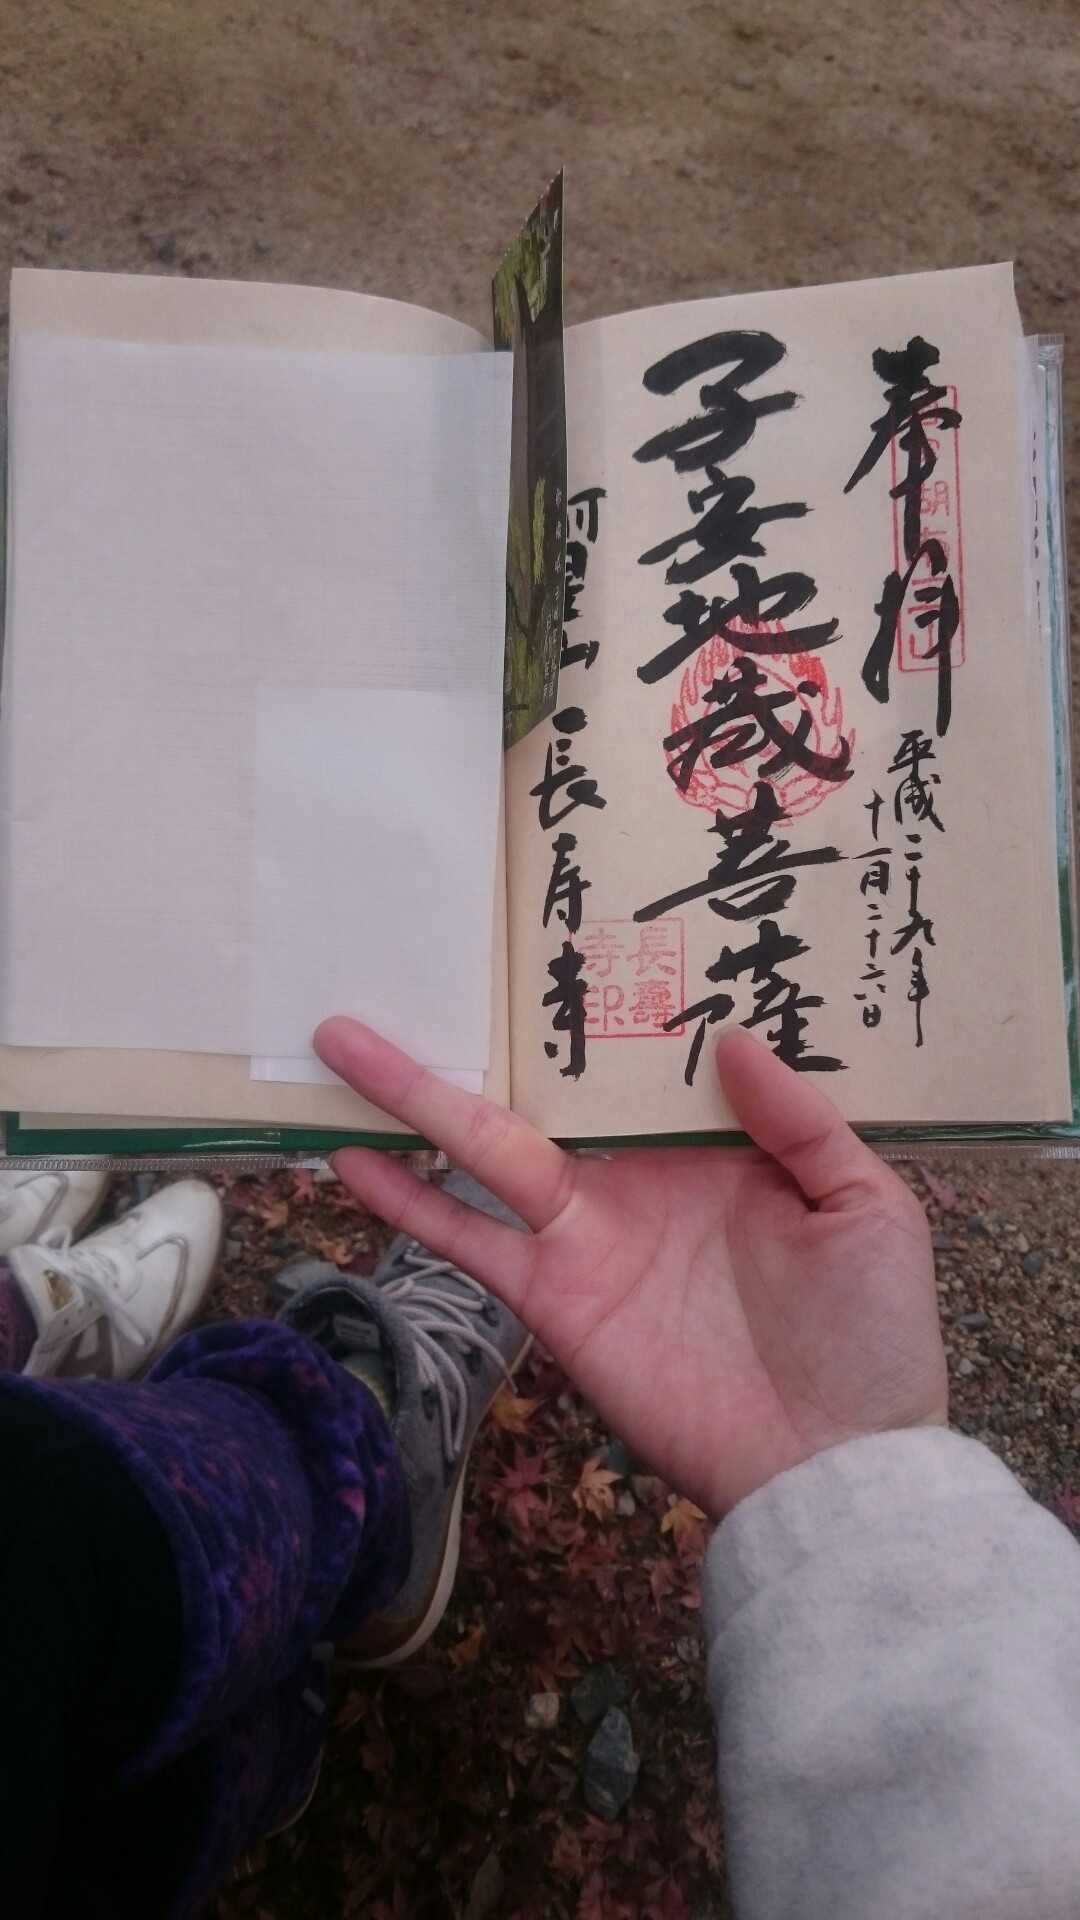 奉拝
平成二十九年
十一月二十六日
子安地蔵菩薩
阿星山 長寿寺
長壽
寺印